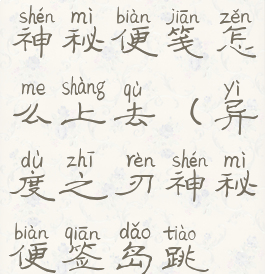 shén mì biàn jiān zěn
神秘便笺怎
me shàng qù yì
么上去（异
dù zhī rèn shén mì
度之刃神秘
biàn qiān dǎo tiào
便签岛跳